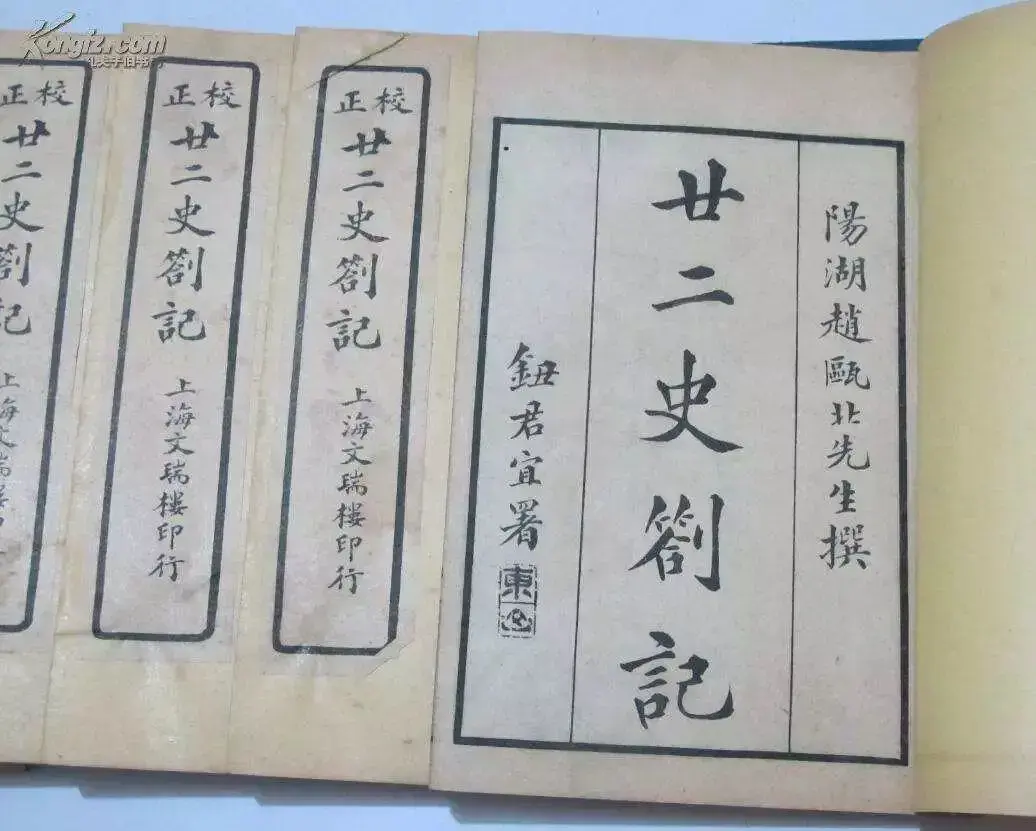 陽湖趙甌北先生撰
廿二史劄記
鈕君宜署
東
校正
廿二史劄記
上海文瑞樓印行
校正
廿二史劄記
上海文瑞樓印行
校正
廿二史劄記
上海文瑞樓印
Kongfz.com
夫子旧书